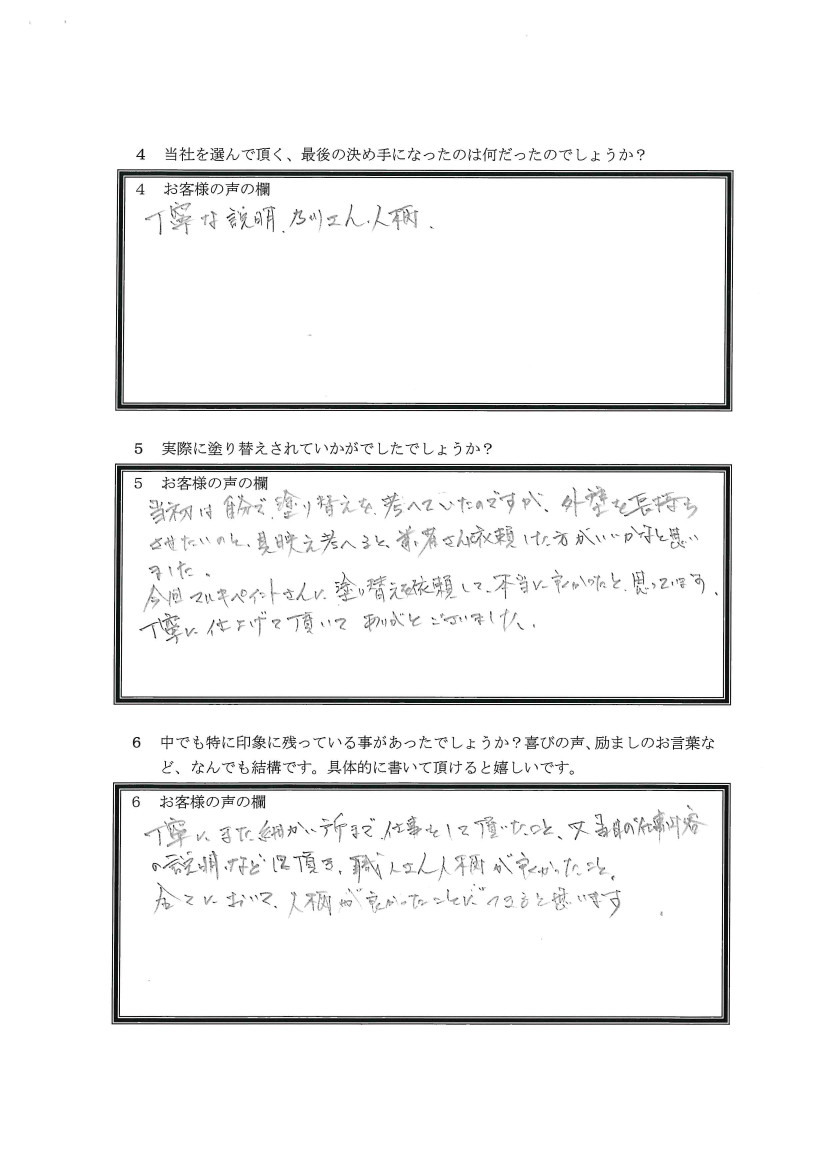 4 当社を選んで頂く、最後の決め手になったのは何だったのでしょうか？
4 お客様の声の欄
丁寧な説明、及川さん、人柄、
5 実際に塗り替えされていかがでしたでしょうか？
5 お客様の声の欄
当初は自分で、塗り替えを、考へていたのですが、外壁を長持ち
させたいのと、見映え考へると、業者さん依頼した方がいいかなと思い
ました。
今回マルキペイントさんに、塗り替えを依頼して、本当に良かったと、思っています、
丁寧に仕上げて頂いて ありがとございました、
6 中でも特に印象に残っている事があったでしょうか？喜びの声、励ましのお言葉な
ど、なんでも結構です。具体的に書いて頂けると嬉しいです。
6 お客様の声の欄
丁寧に、また細かい所まで、仕事をして頂いたこと、又当日の仕事内容
の説明、など 頂き、職人さん人柄が良かったこと。
全てにおいて、人柄が良かったことに つきると思います